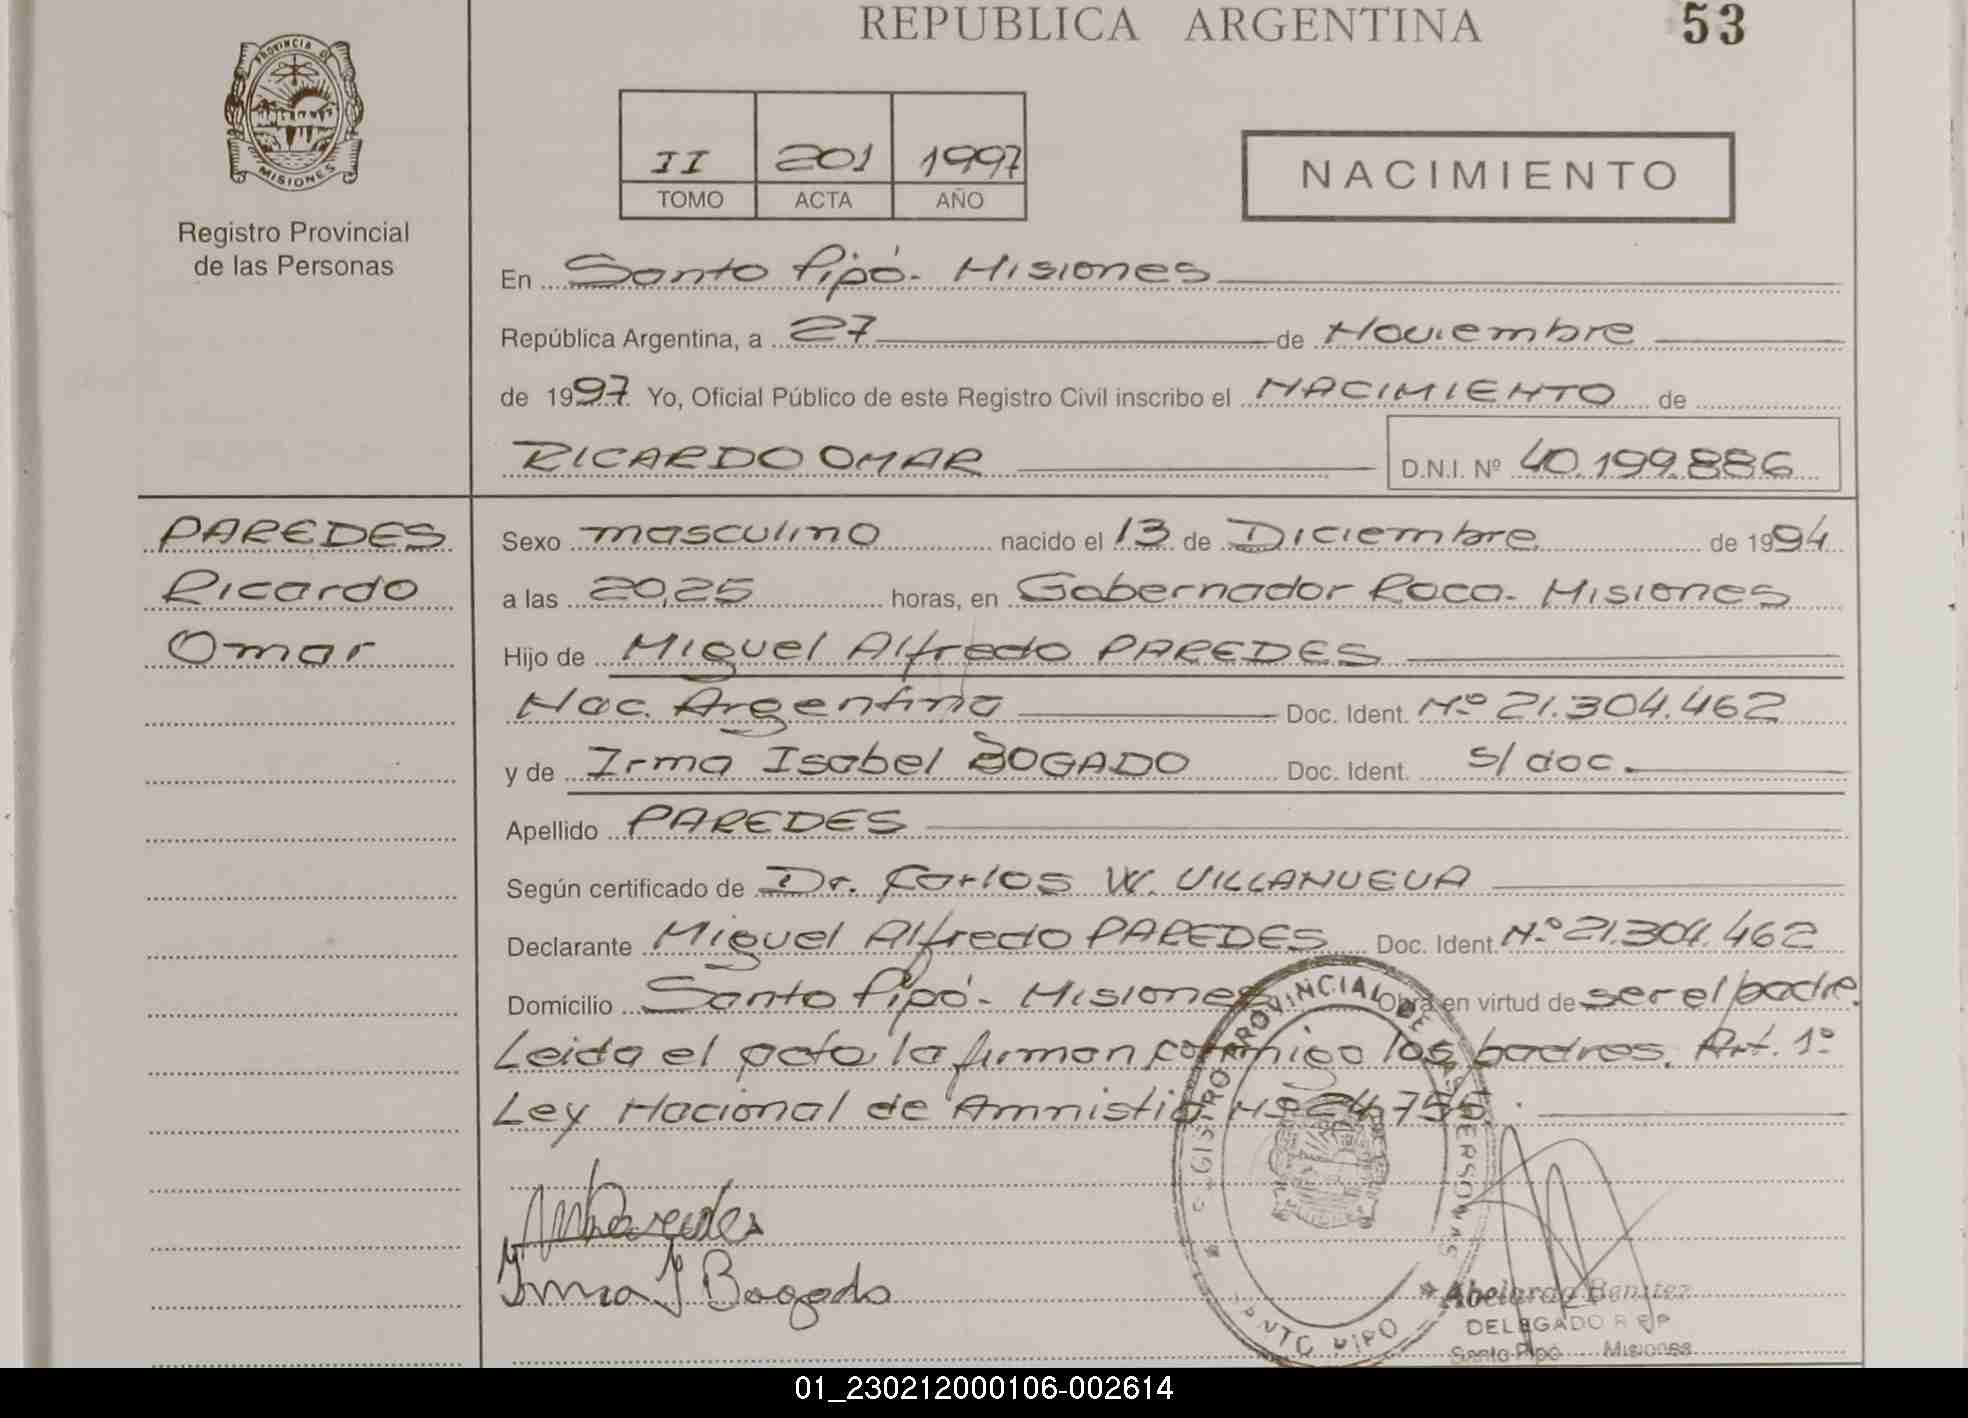 REPUBLICA ARGENTINA 53
PROVINCIA DE
MISIONES
Registro Provincial
de las Personas
II 201 1997
TOMO ACTA AÑO
NACIMIENTO
En Santo Pipó - Misiones
República Argentina, a 27 de Noviembre
de 1997 Yo, Oficial Público de este Registro Civil inscribo el NACIMIENTO de
RICARDO OMAR D.N.I. Nº 40.199.886
PAREDES
Ricardo
Omar
Sexo masculino nacido el 13 de Diciembre de 1994
a las 20,25 horas, en Gobernador Roca - Misiones
Hijo de Miguel Alfredo PAREDES
Nac. Argentina Doc. Ident. Nº 21.304.462
y de Irma Isabel BOGADO Doc. Ident. s/ doc.
Apellido PAREDES
Según certificado de Dr. Carlos W. VILLANUEVA
Declarante Miguel Alfredo PAREDES Doc. Ident. Nº 21.304.462
Domicilio Santo Pipó - Misiones Obra en virtud de ser el padre.
Leida el acta la firman conmigo los padres. Art. 1º
Ley Nacional de Amnistia Nº 24.755.
Paredes
Irma I Bogado
REGISTRO PROVINCIAL DE LAS PERSONAS
SANTO PIPO
Abelardo Benitez
DELEGADO R P P
Santo Pipó Misiones
01_230212000106-002614